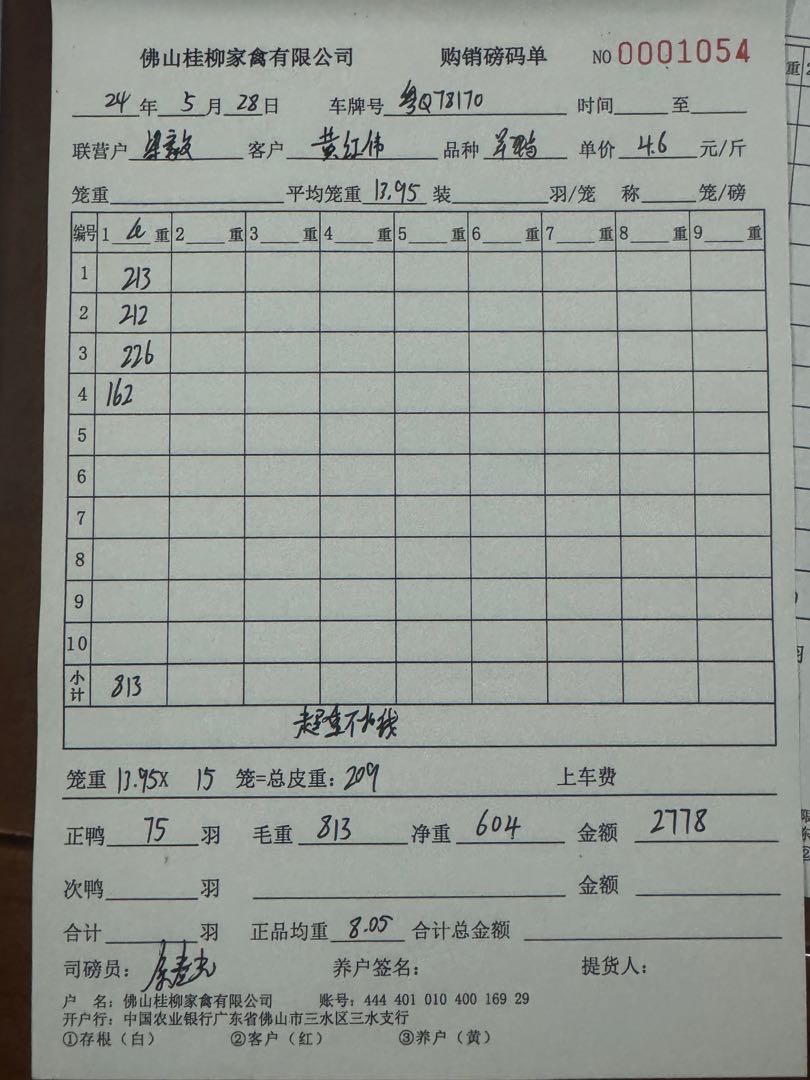 佛山桂柳家禽有限公司 购销磅码单 NO 0001054
24 年 5 月 28 日 车牌号 粤Q78170 时间 至
联营户 客户 黄红伟 品种 单价 4.6 元/斤
笼重 平均笼重 13.95 装 羽/笼 称 笼/磅
编号 1 重 2 重 3 重 4 重 5 重 6 重 7 重 8 重 9 重
1 213
2 212
3 226
4 162
5
6
7
8
9
10
小计 813
超重不加钱
笼重 13.95X 15 笼=总皮重：209 上车费
正鸭 75 羽 毛重 813 净重 604 金额 2778
次鸭 羽 金额
合计 羽 正品均重 8.05 合计总金额
司磅员： 养户签名： 提货人：
户 名：佛山桂柳家禽有限公司 账号：444 401 010 400 169 29
开户行：中国农业银行广东省佛山市三水区三水支行
①存根（白） ②客户（红） ③养户（黄）